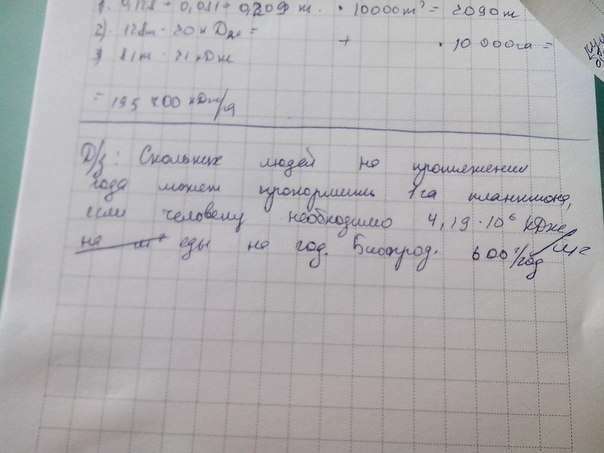 0,128 + 0,081 = 0,209 т. · 10000 m² = 2090 т
2) 128т · 20 кДж =
+ · 10 000га =
3) 81т · 21 кДж
= 195 700 кДж/г
Д/з: Скольких людей на протяжении
года может прокормить 1 га планктона,
если человеку необходимо 4,19 · 10⁶ кДж
на m² еды на год. Биопрод. 600 г/год m²